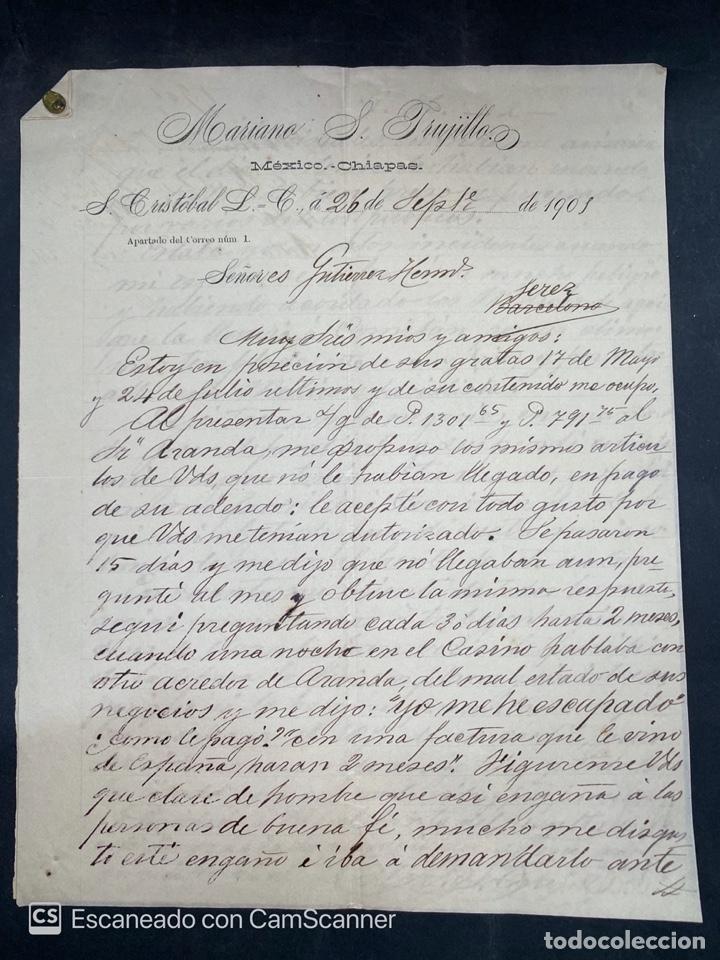 Mariano S. Trujillo
México.-Chiapas.
S. Cristóbal L.-C., á 26 de Sepbre de 1901
Apartado del Correo núm 1.
Señores Gutierrez Hermos.
Jerez
Barcelona
Muy Sres mios y amigos:
Estoy en poseción de sus gratas 17 de Mayo
y 24 de Julio ultimos y de su contenido me ocupo.
Al presentar s/g de P. 1301 65 y P. 791 75 al
Sr Aranda, me propuso los mismos articu
los de Vds, que nó le habian llegado, en pago
de su adeudo: le acepté con todo gusto por
que Vds me tenian autorizado. Se pasaron
15 días y me dijo que nó llegaban aun, pre
gunté al mes y obtuve la misma respuesta,
segui preguntando cada 30 días hasta 2 meses,
cuando una noche en el Casino hablaba con
otro acredor de Aranda, del mal estado de sus
negocios y me dijo: "yo me he escapado"
¿como le pagó? "con una factura que le vino
de España, haran 2 meses". Figurense Vds
que clase de hombre que asi engaña á las
personas de buena fé, mucho me disgus
tó este engaño é iba á demandarlo ante
CS Escaneado con CamScanner
todocoleccion